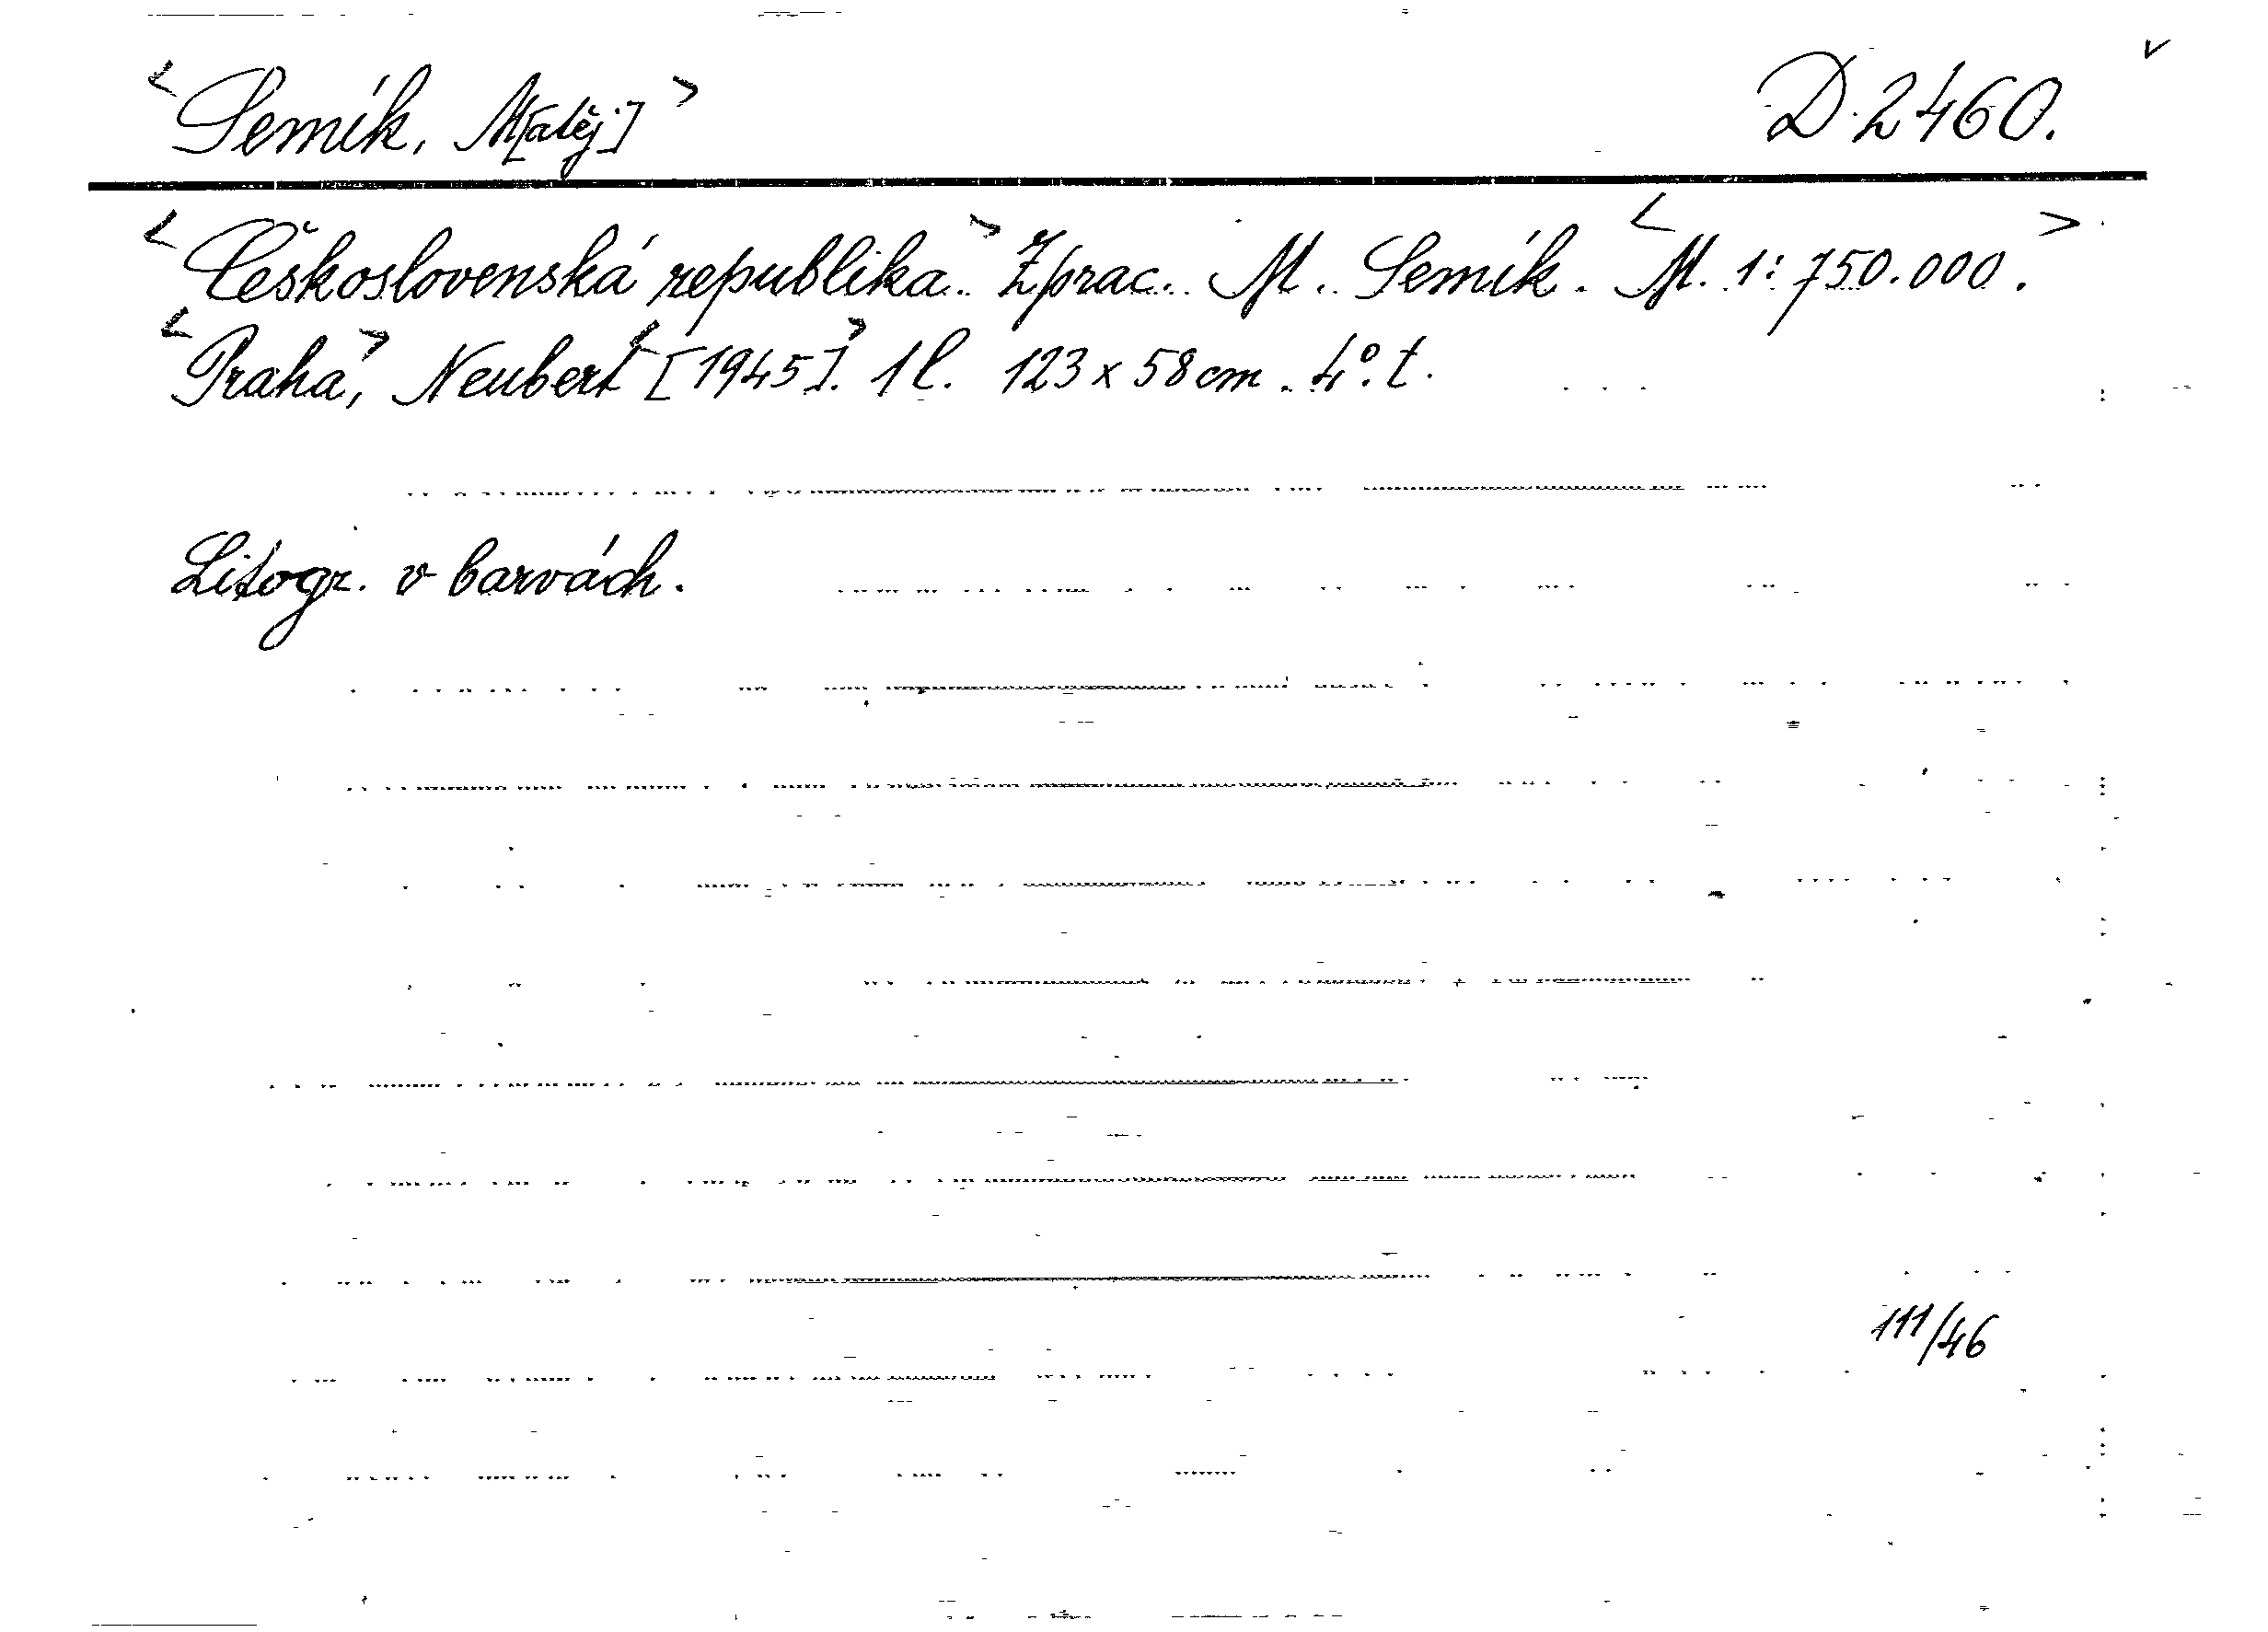 <Semík, M[atěj]> D.2460.
<Československá republika.> Zprac. M. Semík. <M. 1:750.000.>
<Praha,> Neubert <[1945].> 1 l. 123 x 58 cm. 4°. t.
Litogr. v barvách.
111/46